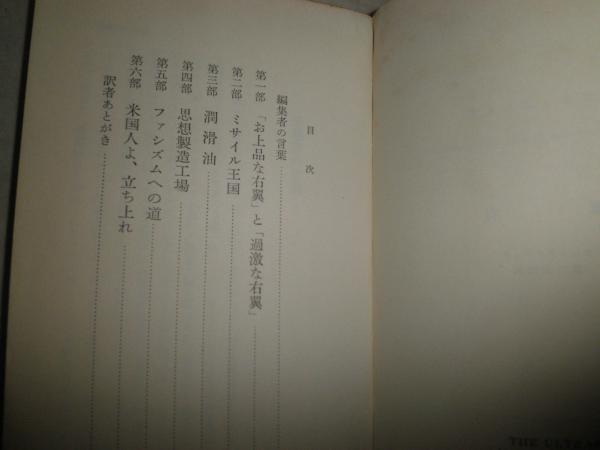 目次
編集者の言葉
第一部 「お上品な右翼」と「過激な右翼」
第二部 ミサイル王国
第三部 潤滑油
第四部 思想製造工場
第五部 ファシズムへの道
第六部 米国人よ、立ち上れ
訳者あとがき
THE ULTRA